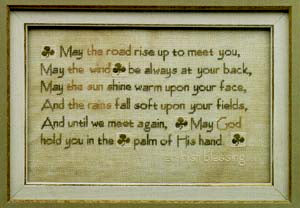 May the road rise up to meet you,
May the wind be always at your back,
May the sun shine warm upon your face,
And the rains fall soft upon your fields,
And until we meet again, May God
hold you in the palm of His hand.
an irish blessing